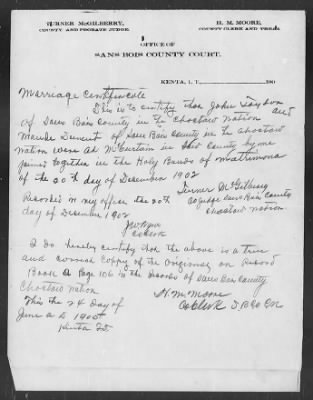 TURNER McGILBERRY,
COUNTY AND PROBATE JUDGE.
H. M. MOORE,
COUNTY CLERK AND TREAS.
OFFICE OF
SANS BOIS COUNTY COURT.
KENTA, I. T., 190
Marriage Certificate
This is to certify that John
of Sans Bois County in the Choctaw Nation and
Maude of Sans Bois County in the Choctaw
Nation were at McCurtain in said County by me
joined together in the Holy Bands of Matrimony
of the 20th day of December 1902
Turner McGilberry
Co Judge Sans Bois County
Choctaw Nation
Recorded in my office the 20th
day of December 1902
Co Clerk
I do hereby certify that the above is a true
and correct copy of the original on Record
Book Page 106 in the Records of Sans Bois County
Choctaw Nation
This the 24 day of
June A D 1905
H. M. Moore
Co Clerk S B Co C N
Kinta I T